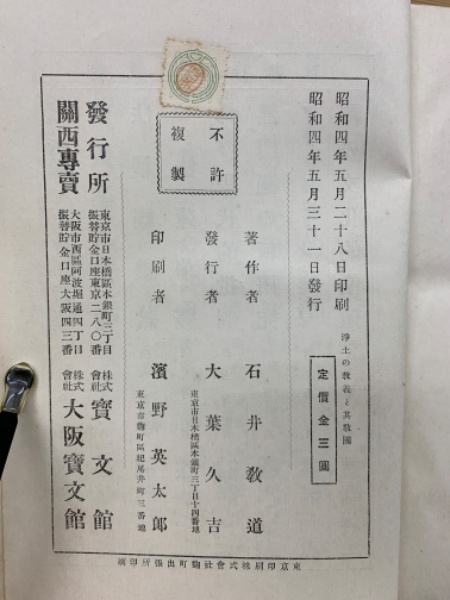 昭和四年五月二十八日印刷
昭和四年五月三十一日發行
浄土の教義と其教團
定價金三圓
不許
複製
著作者 石井教道
發行者 大葉久吉
東京市日本橋區本銀町三丁目十四番地
印刷者 濱野英太郎
東京市麴町區紀尾井町三番地
發行所
東京市日本橋區本銀町三丁目
振替貯金口座東京二八〇番
株式會社 寶文館
關西專賣
大阪市西區阿波堀通四丁目
振替貯金口座大阪四三番
株式會社 大阪寶文館
東京印刷株式會社麴町出張所印刷